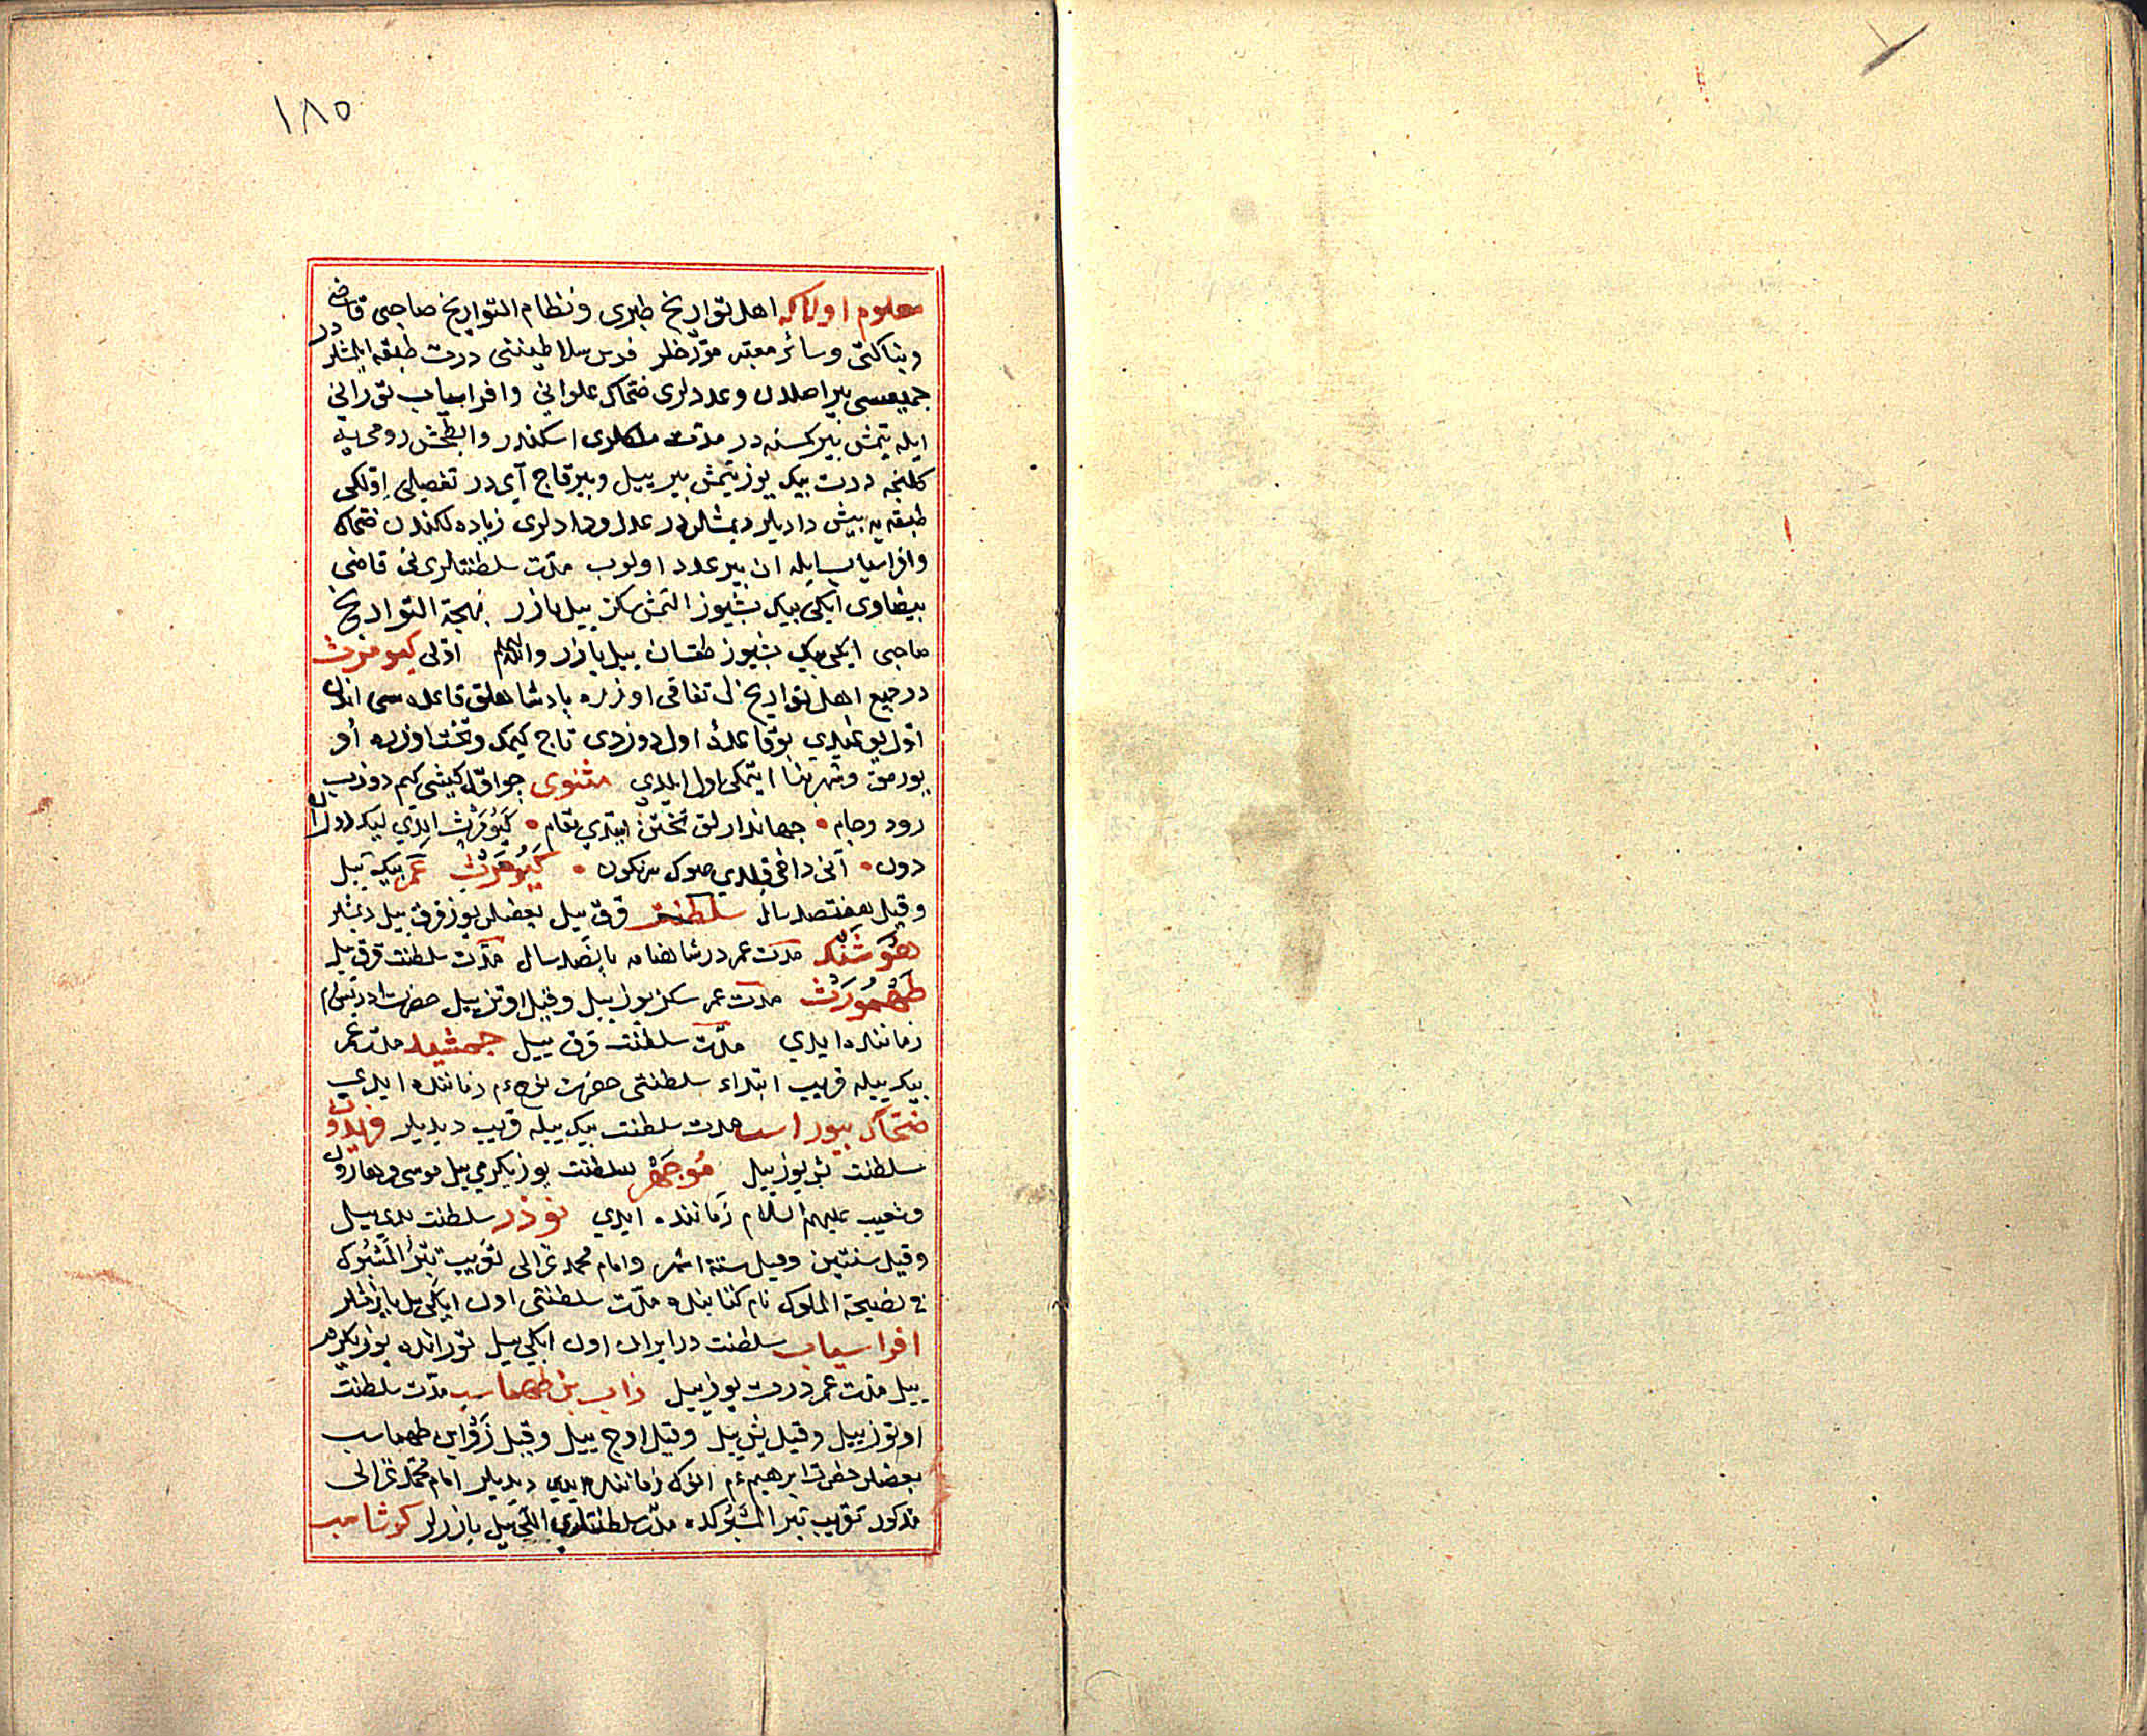 ١٨٥
معلوم اولاکه اهل تواریخ طبری و نظام التواریخ صاحبی قاضی
و بناکتی و سائر معتبر مورّخلر فرس سلاطیننی درت طبقه ایلمشلردر
جمیعسی بیر اصلدن و عددلری ضحاک علوانی و افراسیاب تورانی
ایله یتمش بیر کمسنه در مدت ملکلری اسکندر رومی یه
کلنجه درت بیک یوز یتمش بیر ییل و بیر قاج آی در تفصیلی اوّلکی
طبقه یه پیش دادیلر دیمشلردر عدل و دادلری زیاده لکندن ضحاک
و افراسیاب ایله ان بیر عدد اولوب مدّت سلطنتلری نی قاضی
بیضاوی ایکی بیک بشیوز التمش سکز ییل یازر بهجة التواریخ
صاحبی ایکی بیک بشیوز طقسان ییل یازر والله اعلم اوّلی کیومرث
در جمیع اهل تواریخ اتفاقی اوزره پادشاهلق قاعده سی اندن
اوّل یوغیدی بو قاعدۀ اول دوزدی تاج کیمک و تخت اوزره او
یورمق و شهر بنا ایتمکی اول ایلدی مثنوی جو اوّل کیشی کیم دوزیب
رود و جام • جهاندارلق تختن ایتدی مقام • کیومرث ایدی لیک
دون • آنی داخی قیلدی صوک سرنکون • کیومرث عمر بیک ییل
و قیل هفتصد سال سلطنت قرق ییل بعضلر یوز قرق ییل دیمشلر
هوشنک مدت عمر در شاهنامه پانصد سال مدّت سلطنت قرق ییل
طهمورث مدت عمر سکز یوز ییل و قیل اوتز ییل حضرت ادریس
زماننده ایدی مدّت سلطنت قرق ییل جمشید مدّت عمر
بیک ییله قریب ابتداء سلطنتی حضرت نوح ءم زماننده ایدی
ضحاک بیوراسب مدت سلطنت بیک ییله قریب دیدیلر فریدون
سلطنت بش یوز ییل منوجهر سلطنت یوز یکرمی ییل موسی و هارون
و شعیب علیهم السلام زماننده ایدی نوذر سلطنت یدی ییل
و قیل سنتین و قیل ستة اشهر و امام محمد غزالی تعریب تبر المسبوک
فی نصیحة الملوک نام کتابنده مدّت سلطنتی اون ایکی ییل یازمشلر
افراسیاب سلطنت در ایران اون ایکی ییل تورانده یوز یکرمی
ییل مدّت عمر درت یوز ییل زاب بن طهماسب مدّت سلطنت
اوتوز ییل و قیل بش ییل و قیل اوج ییل و قیل زو ابن طهماسب
بعضلر حضرت ابرهیم ءم انوک زماننده ایدی دیدیلر امام محمد غزالی
مذکور تعریب تبر المسبوکده مدّت سلطنتلرین اللی ییل یازرلر کرشاسب